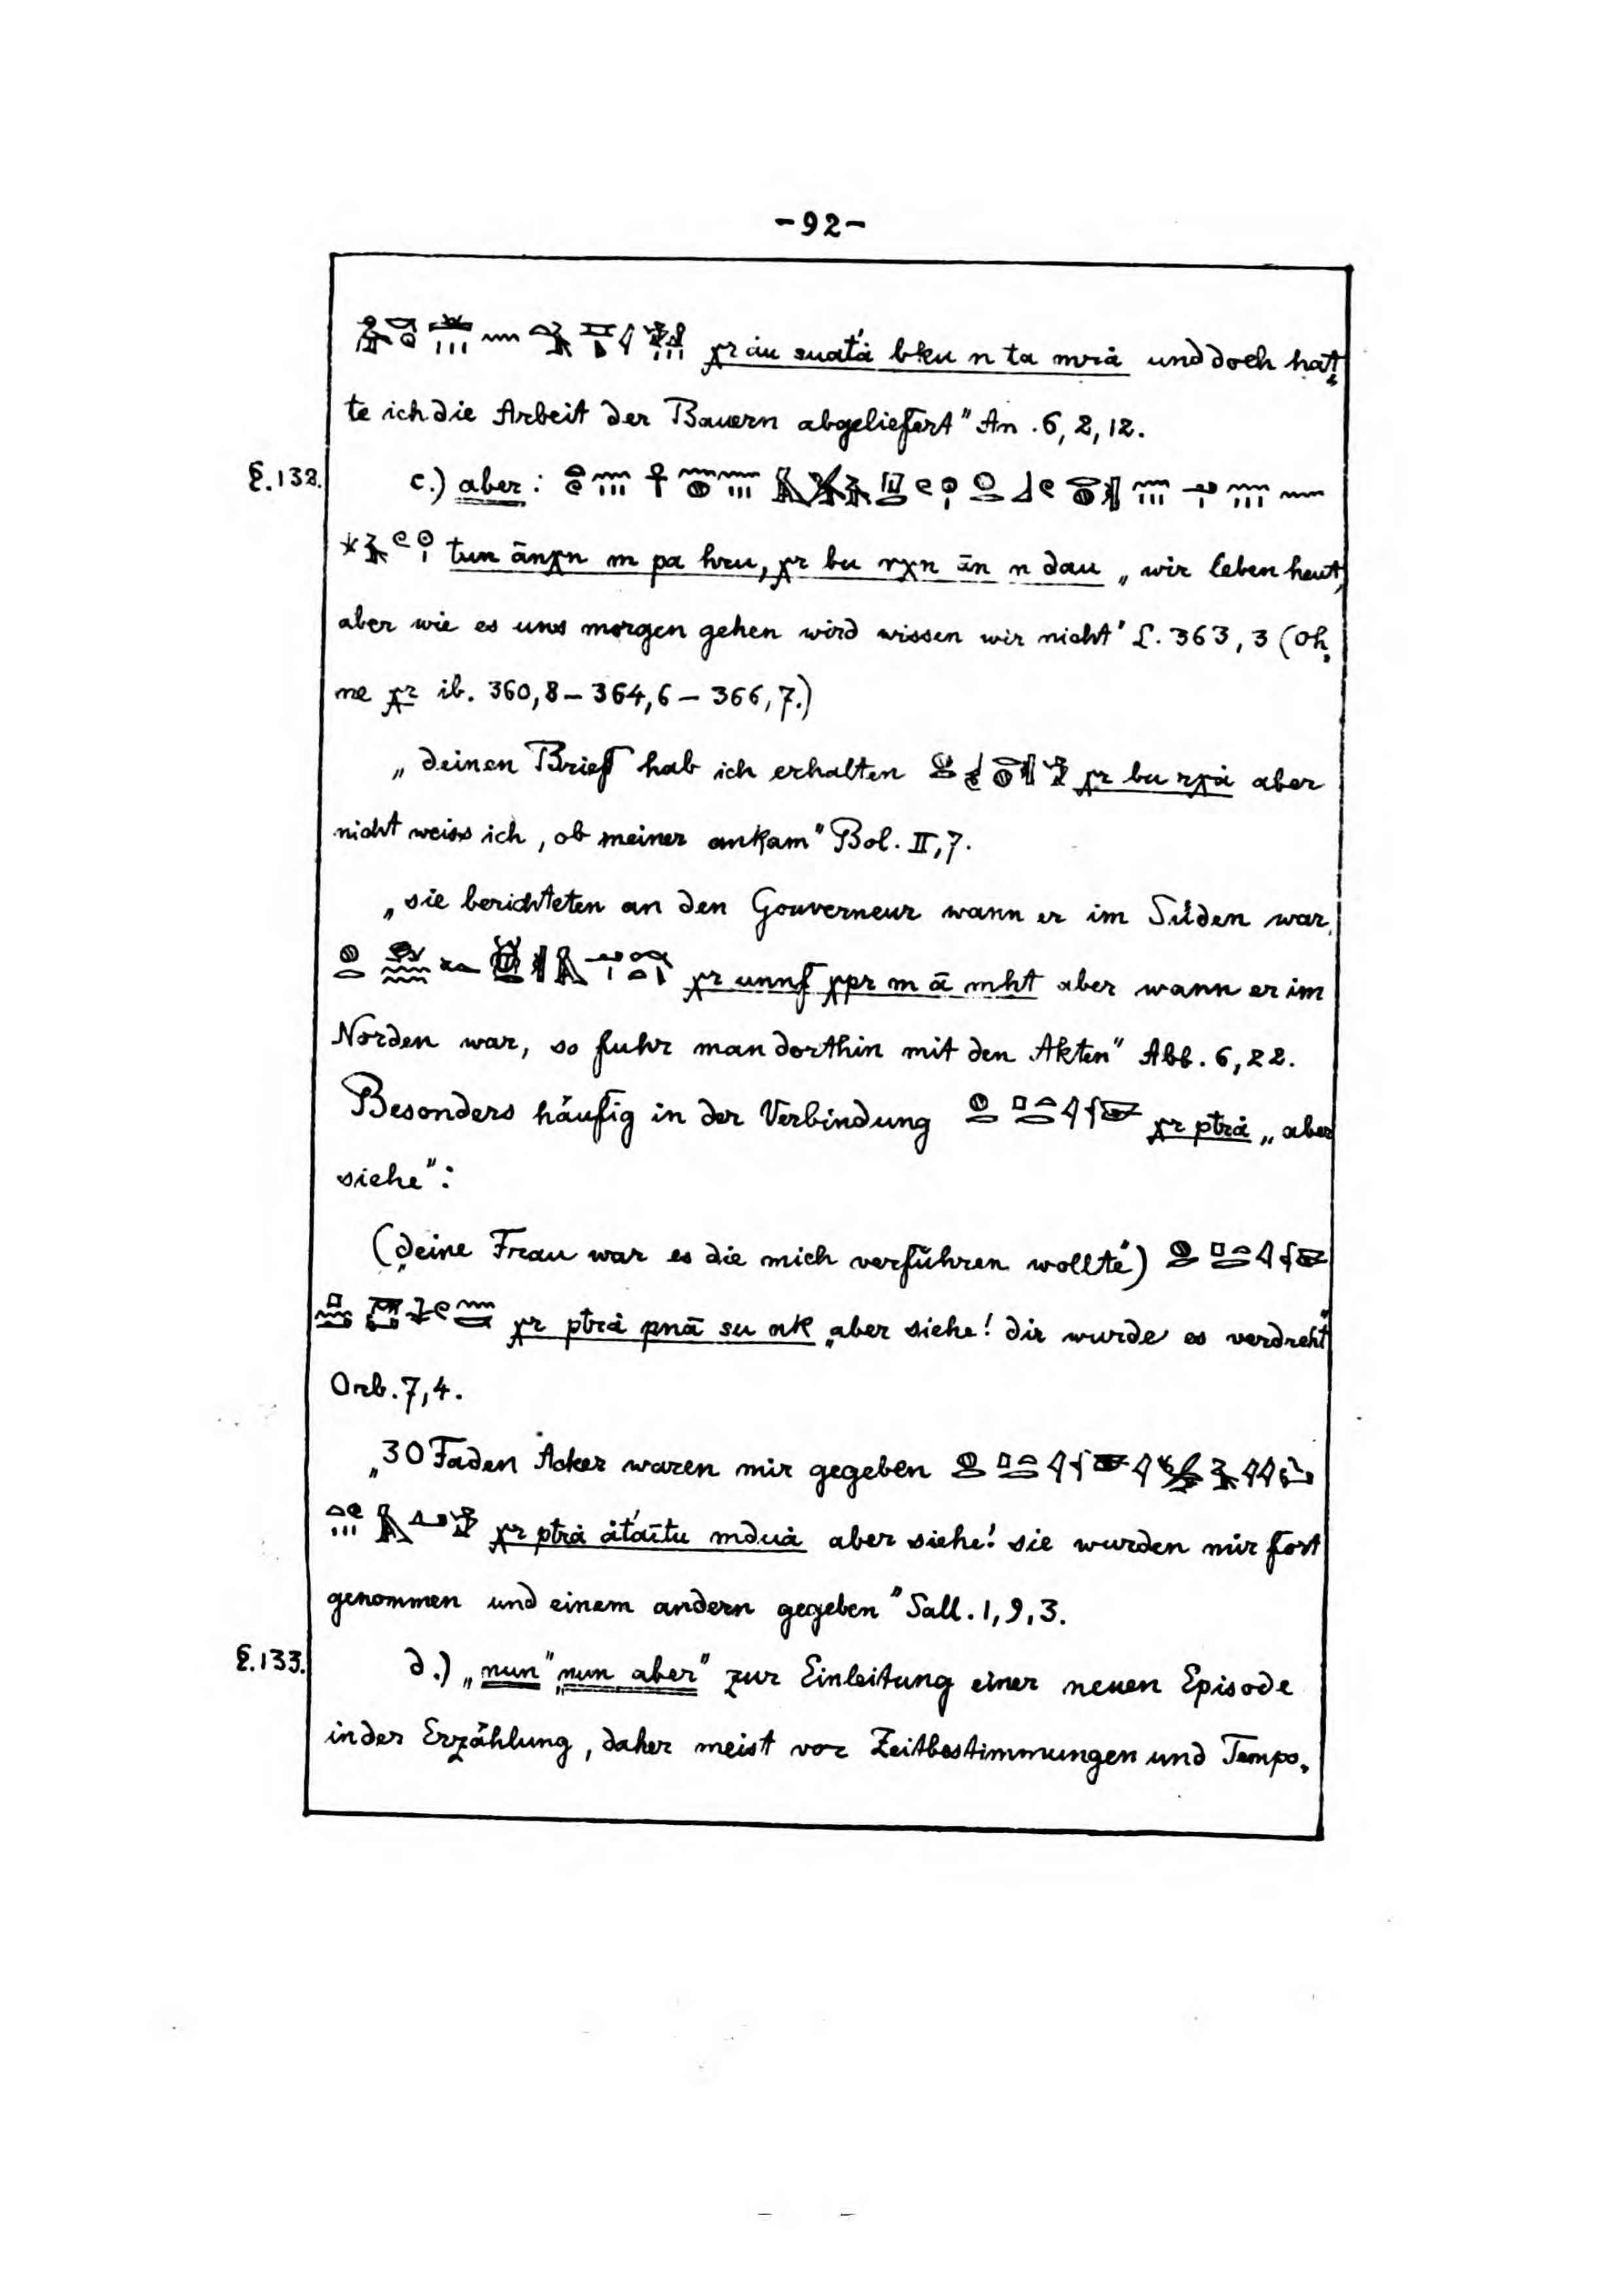 -92-
χr áu suat́á bku n ta mrá und doch hat-
te ich die Arbeit der Bauern abgeliefert" An. 6, 2, 12.
§. 132. c.) aber:
tun ānχn m pa hru, χr bu rχn ān n dau „wir leben heut,
aber wie es uns morgen gehen wird wissen wir nicht" L. 363, 3 (oh-
ne χr ib. 360, 8 – 364, 6 – 366, 7.)
„deinen Brief hab ich erhalten χr bu rχá aber
nicht weiss ich, ob meiner ankam" Bol. II, 7.
„sie berichteten an den Gouverneur wann er im Süden war,
χr unnf χpr m ā mht aber wann er im
Norden war, so fuhr man dorthin mit den Akten" Abb. 6, 22.
Besonders häufig in der Verbindung χr ptrá „aber
siehe":
(„deine Frau war es die mich verführen wollte")
χr ptrá pnā su nk „aber siehe! dir wurde es verdreht"
Orb. 7, 4.
„30 Faden Acker waren mir gegeben
χr ptrá át́aītu mduá aber siehe! sie wurden mir fort
genommen und einem andern gegeben" Sall. 1, 9, 3.
§. 133. d.) „nun" „nun aber" zur Einleitung einer neuen Episode
in der Erzählung, daher meist vor Zeitbestimmungen und Tempo-